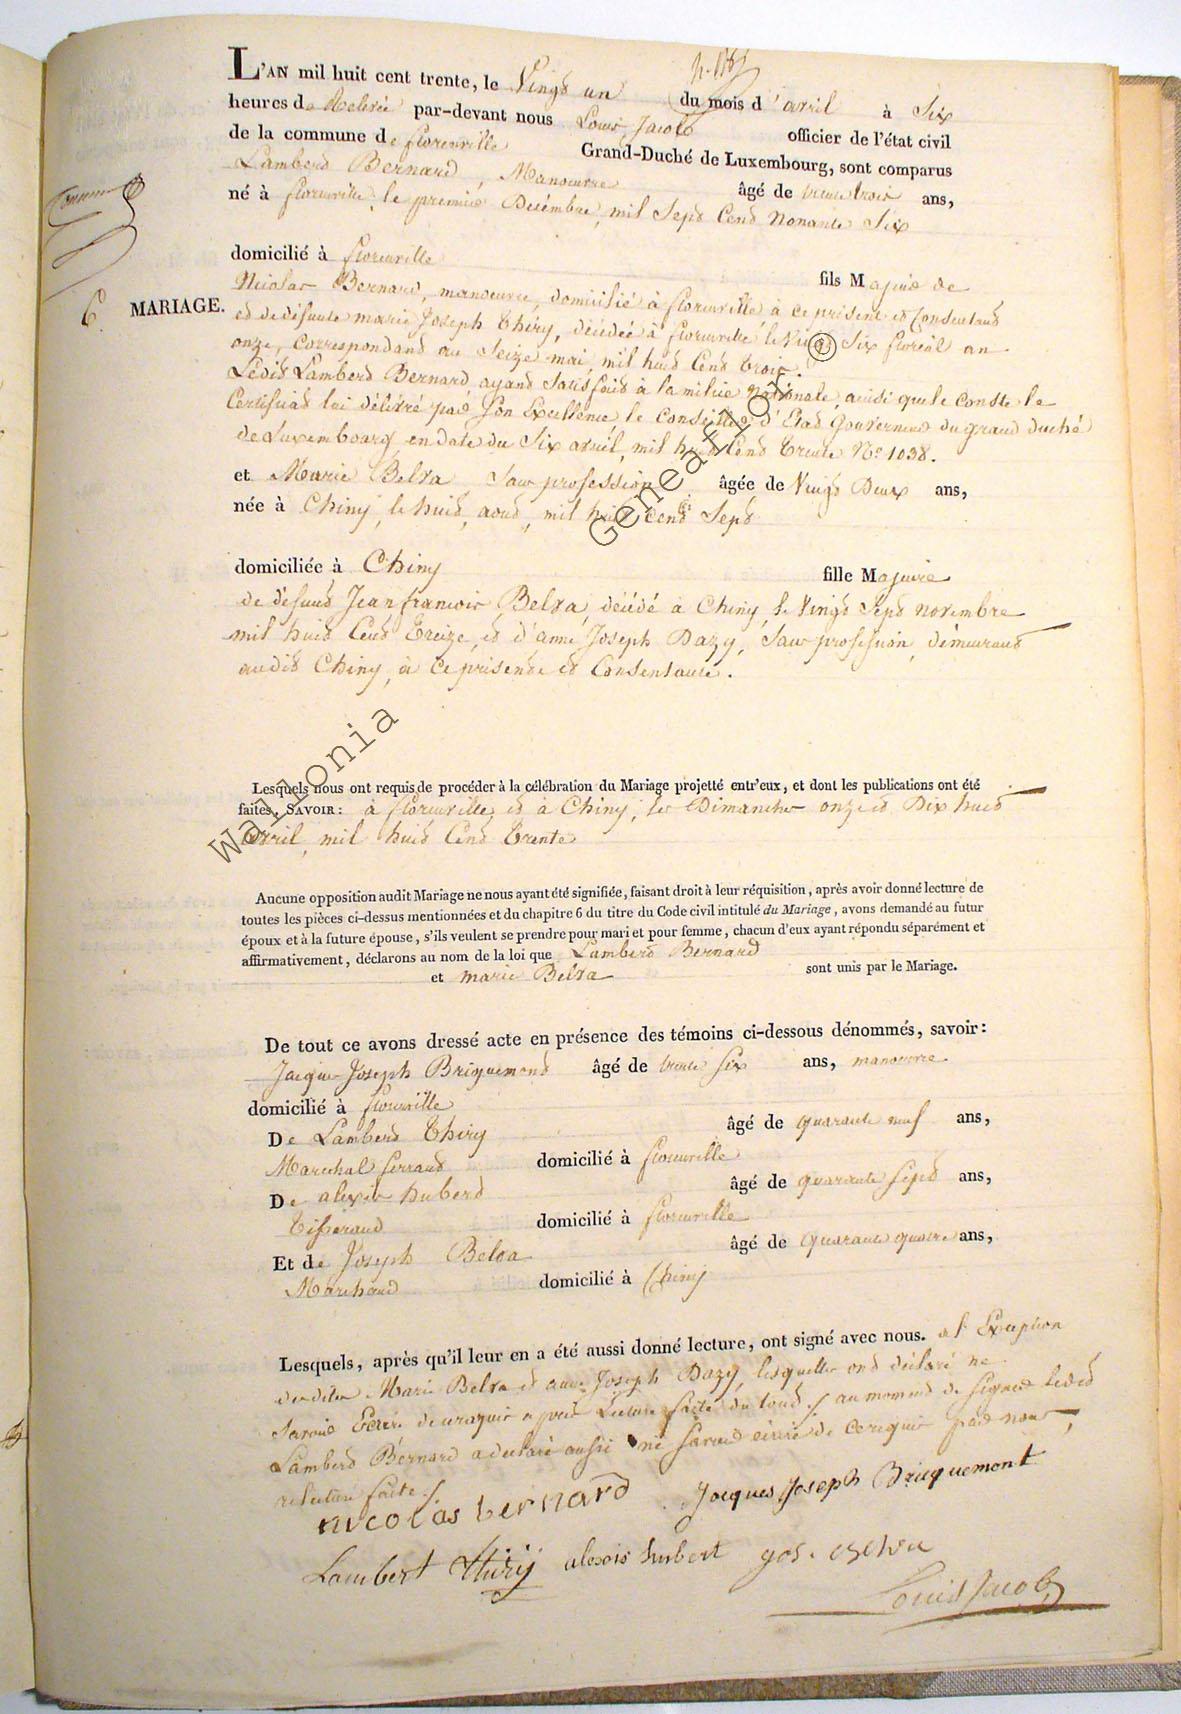 L'AN mil huit cent trente, le Vingt un du mois d'avril à Six
heures de Relevée par-devant nous Louis Jacob officier de l'état civil
de la commune de florenville Grand-Duché de Luxembourg, sont comparus
Lambert Bernard, Manoeuvre âgé de trente trois ans,
né à florenville, le premier Decembre, mil Sept Cent Nonante Six
domicilié à florenville fils Majeur de
Nicolas Bernard, manoeuvre, domicilié à florenville à ce présent et Consentant
et de défunte marie Joseph Thiry, décédée à florenville le Vingt Six floréal an
onze, correspondant au Seize mai, mil huit Cent trois.
Ledit Lambert Bernard, ayant Satisfait à la milice Nationale, ainsi que le conste le
Certificat lui délivré par Son Excellence, le conseiller d'Etat Gouverneur du grand duché
de Luxembourg, en Date du Six avril, mil huit Cent trente No 1038.
et Marie Belva Sans profession âgée de Vingt Deux ans,
née à Chiny, le huit, aout, mil huit cent Sept
domiciliée à Chiny fille Majeure
de défunt Jean francois Belva, décédé à Chiny, le Vingt Sept novembre
mil huit Cent Treize, et d'anne Joseph Dazy, Sans profession, demeurant
audit Chiny, à ce présente et Consentante.
6. MARIAGE.
Lesquels nous ont requis de procéder à la célébration du Mariage projetté entr'eux, et dont les publications ont été
faites, SAVOIR: à florenville et à Chiny, les Dimanches onze et Dix huit
avril, mil huit Cent trente
Aucune opposition audit Mariage ne nous ayant été signifiée, faisant droit à leur réquisition, après avoir donné lecture de
toutes les pièces ci-dessus mentionnées et du chapitre 6 du titre du Code civil intitulé du Mariage, avons demandé au futur
époux et à la future épouse, s'ils veulent se prendre pour mari et pour femme, chacun d'eux ayant répondu séparément et
affirmativement, déclarons au nom de la loi que Lambert Bernard
et marie Belva sont unis par le Mariage.
De tout ce avons dressé acte en présence des témoins ci-dessous dénommés, savoir:
Jacque Joseph Briquemont âgé de trente six ans, manoeuvre
domicilié à florenville
De Lambert Thiry âgé de quarante neuf ans,
Marechal ferrant domicilié à florenville
De alexis hubert âgé de quarante sept ans,
tisserand domicilié à florenville
Et de Joseph Belva âgé de quarante quatre ans,
Marchand domicilié à Chiny
Lesquels, après qu'il leur en a été aussi donné lecture, ont signé avec nous. à l'Exception
desdites Marie Belva et anne Joseph Dazy, lesquelles ont déclaré ne
Savoir Ecrire de ce requis après Lecture faite du tout./ au moment de Signer ledit
Lambert Bernard a declaré aussi ne Savoir écrire de ce requis par nous,
relecture faite./
nicolas bernard Jacques Joseph Bricquemont
Lambert Thiry alexis hubert jos. Belva
Louis Jacob
Wallonia Geneaflor ©